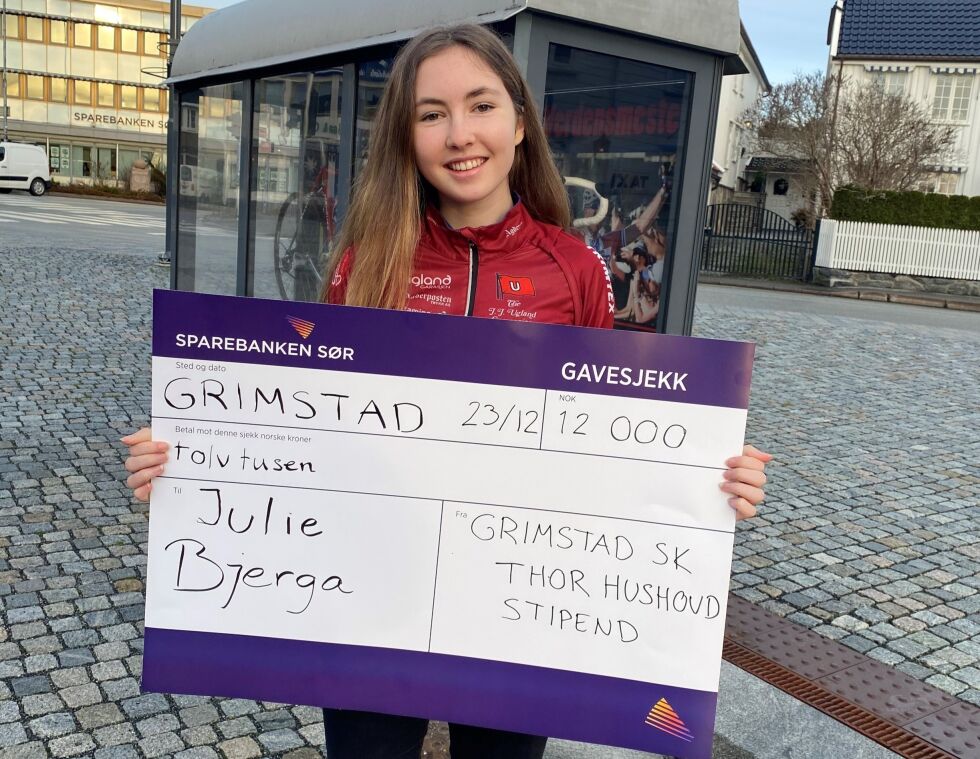 SPAREBANKEN SØR
TAXI
ugland
GARASJEN
U
The
J.J. Ugland
SPAREBANKEN SØR
GAVESJEKK
Sted og dato
GRIMSTAD 23/12
NOK
12 000
Betal mot denne sjekk norske kroner
tolv tusen
Til
Julie
Bjerga
Fra
GRIMSTAD SK
THOR HUSHOVD
STIPEND